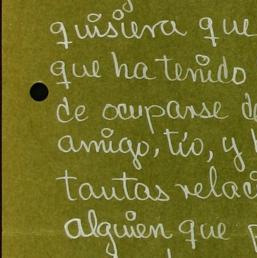 quisiera que
que ha tenido
de ocuparse de
amigo, tío, y
tantas relaci
alguien que